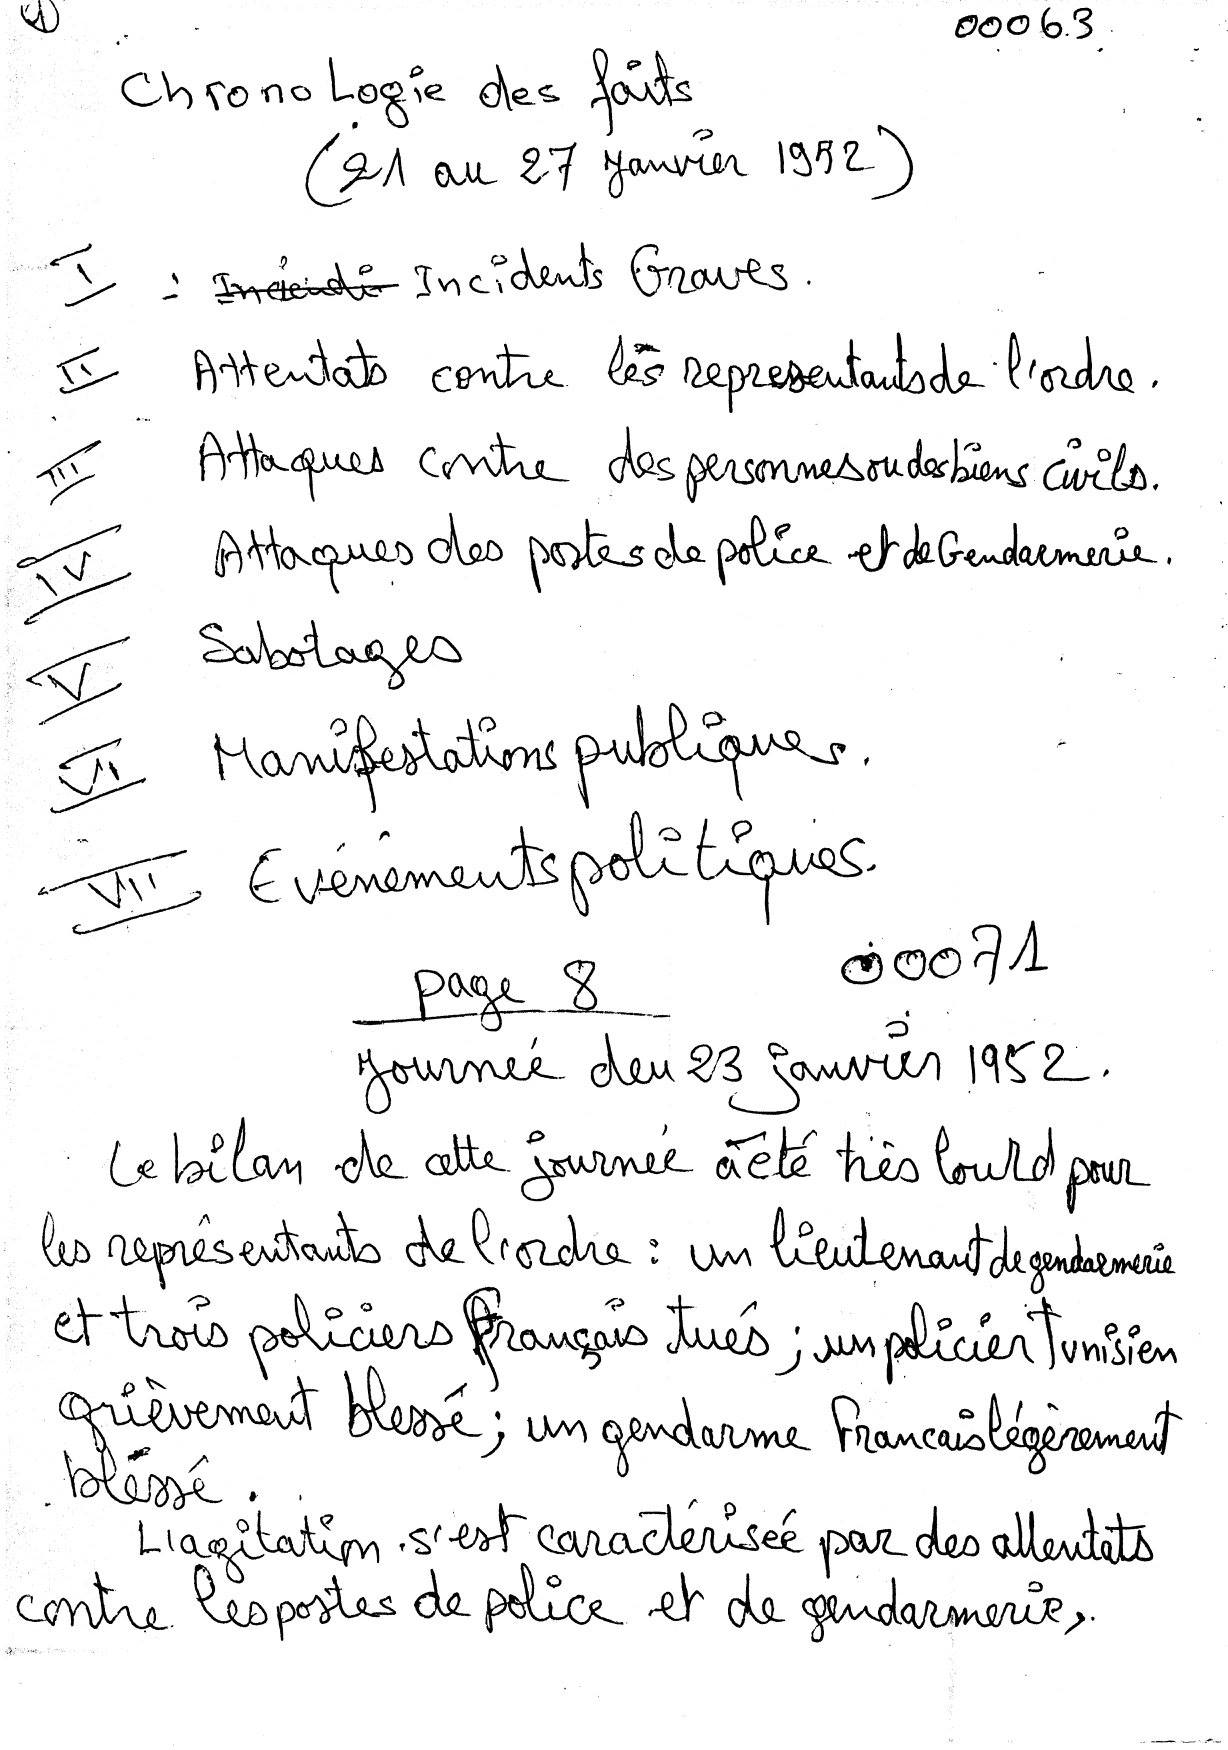 1
00063
Chronologie des faits
(21 au 27 Janvier 1952)
I : Incidents Graves.
II Attentats contre les representants de l'ordre.
III Attaques contre des personnes ou des biens civils.
IV Attaques des postes de police et de Gendarmerie.
V Sabotages
VI Manifestations publiques.
VII Evénements politiques.
page 8 00071
Journeé deu 23 janvier 1952.
Le bilan de cette journeé a été très lourd pour
les représentants de l'ordre : un lieutenant de gendarmerie
et trois policiers français tués ; un policier Tunisien
grièvement blessé ; un gendarme Francais légèrement
bléssé.
L'agitation s'est caractériseé par des allentats
contre les postes de police et de gendarmerie,